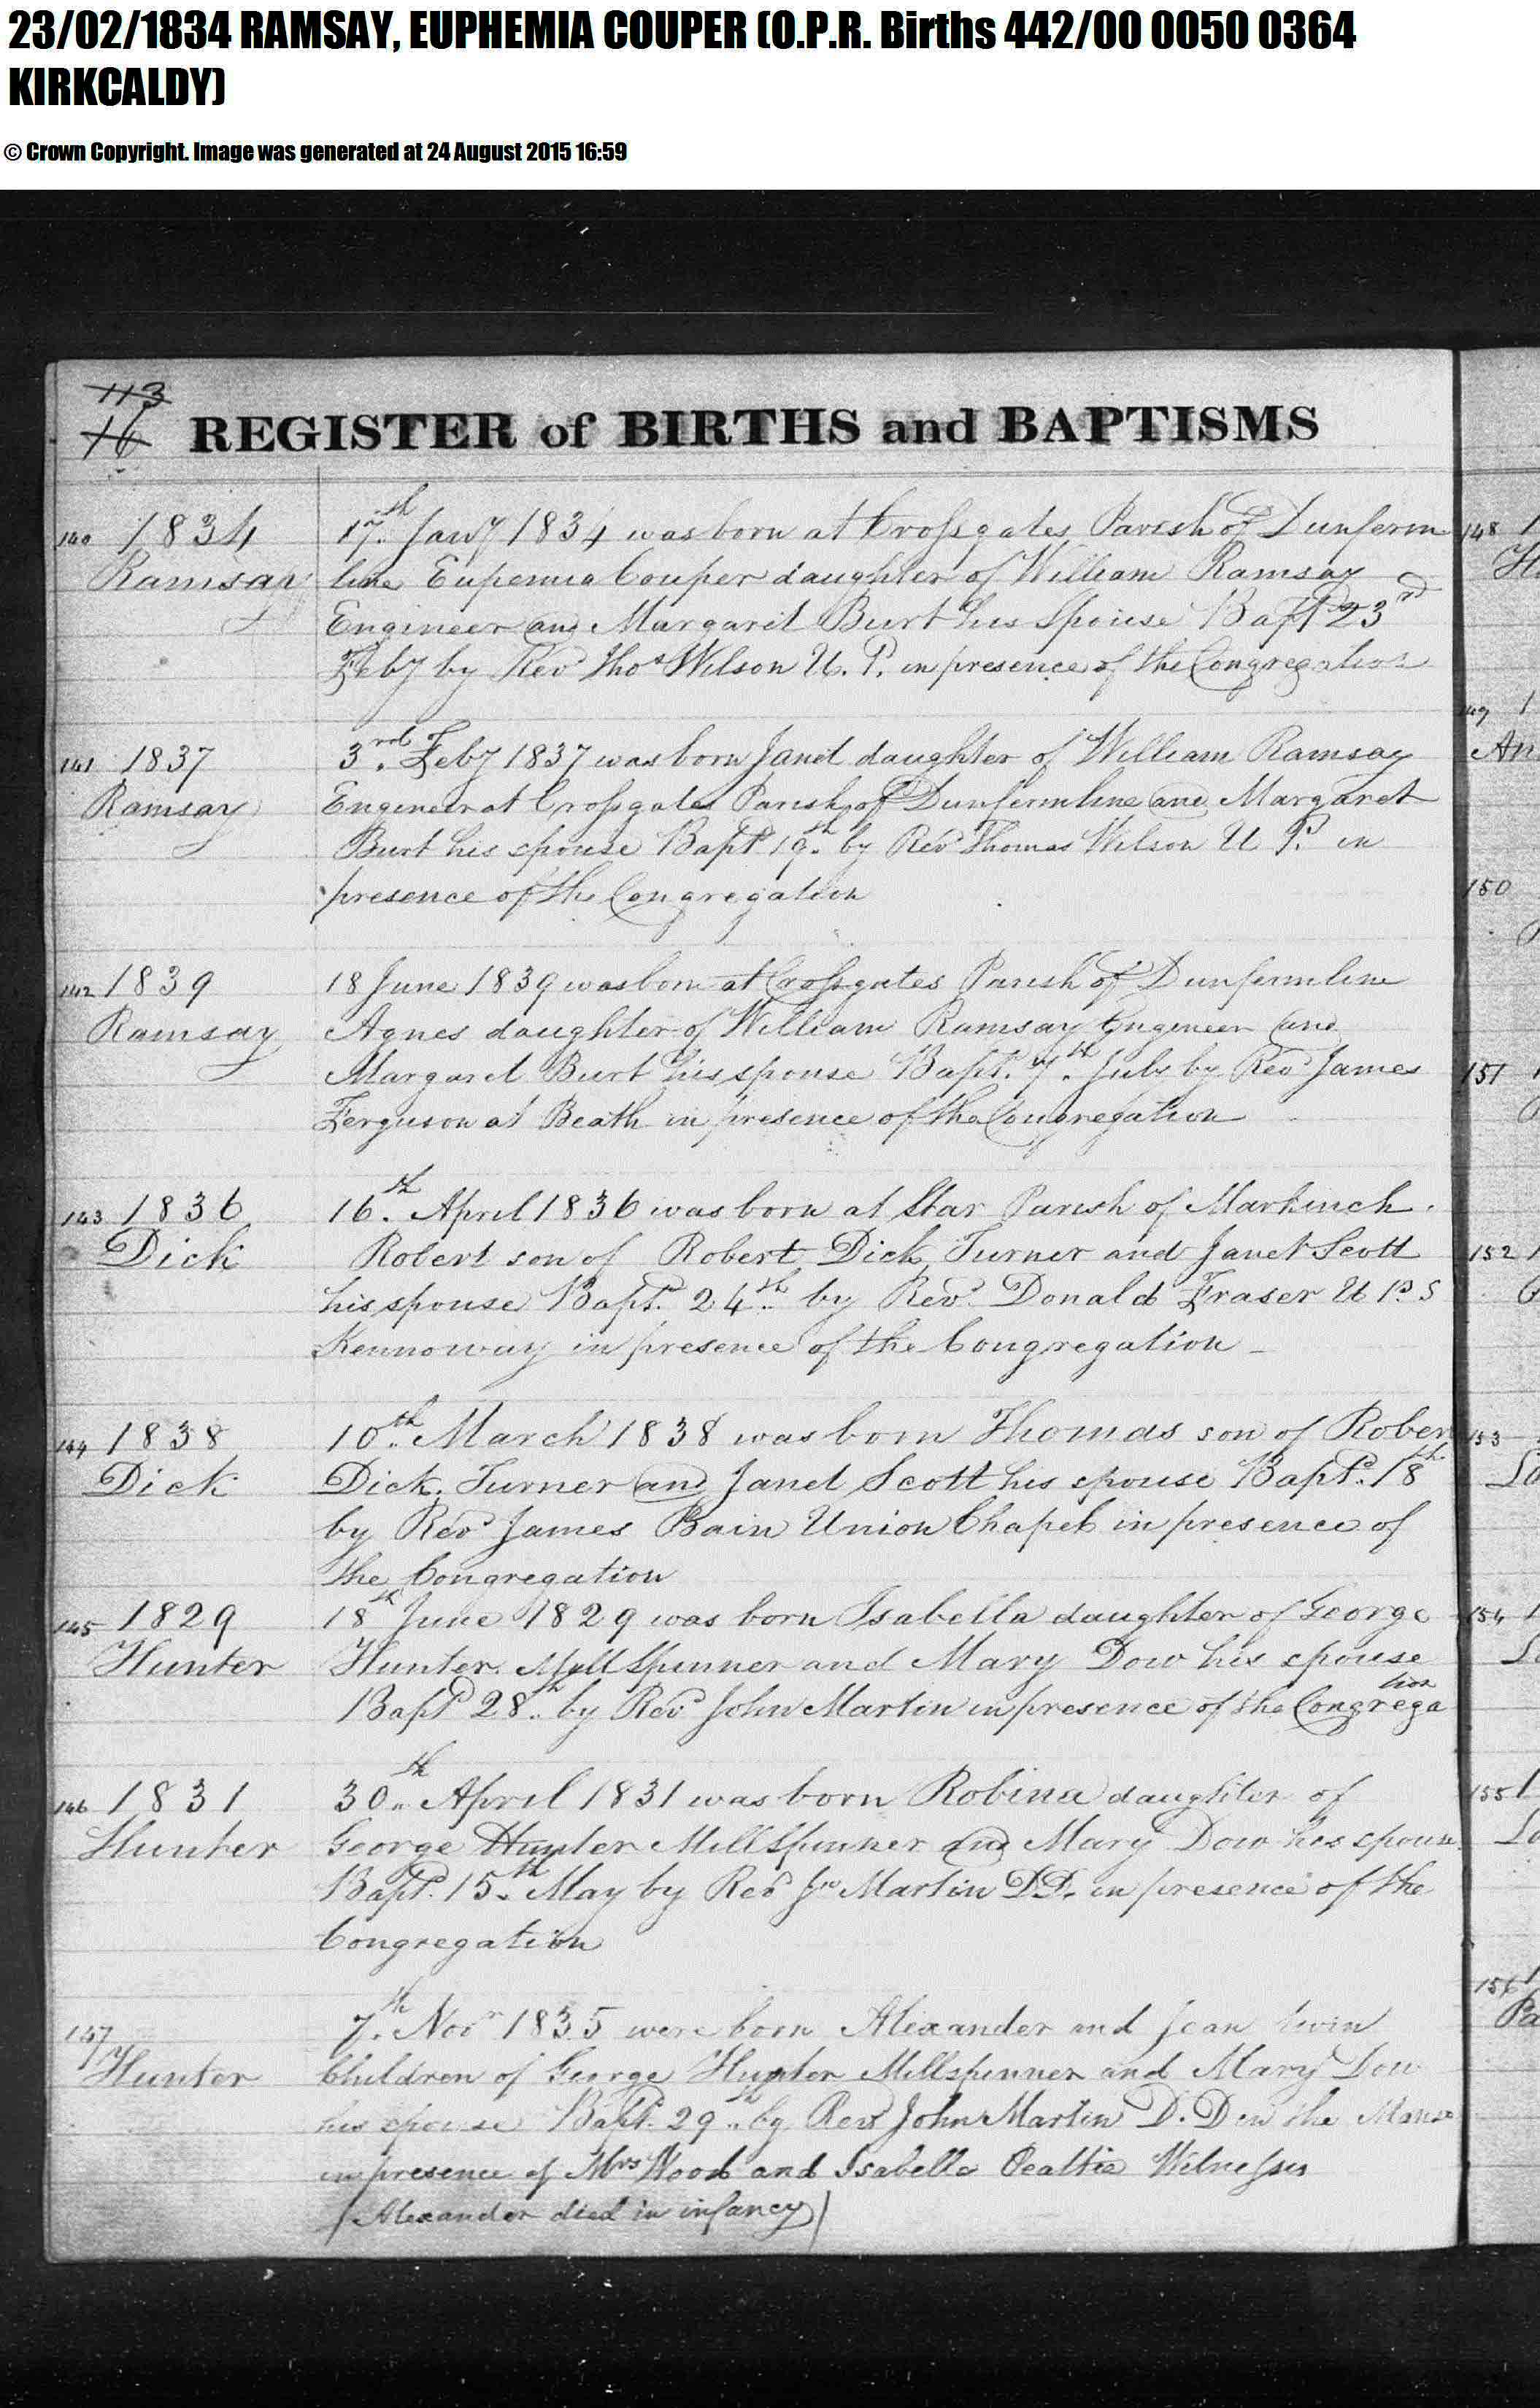 23/02/1834 RAMSAY, EUPHEMIA COUPER (O.P.R. Births 442/00 0050 0364
KIRKCALDY)
© Crown Copyright. Image was generated at 24 August 2015 16:59
113
16
REGISTER of BIRTHS and BAPTISMS
140 1834 17th Jany 1834 was born at Crossgates Parish of Dunferm
Ramsay line Eupemia Couper daughter of William Ramsay
Engineer and Margaret Burt his Spouse Bapd 23rd
Feby by Revd Thos Wilson U. P. in presence of the Congregation
141 1837 3rd Feby 1837 was born Janet daughter of William Ramsay
Ramsay Engineer at Crossgates Parish of Dunfermline and Margaret
Burt his spouse Bapd 19th by Revd Thomas Wilson U P. in
presence of the Congregation
142 1839 18 June 1839 was born at Crossgates Parish of Dunfermline
Ramsay Agnes daughter of William Ramsay Engineer and
Margaret Burt his spouse Bapt. 7th July by Revd James
Ferguson at Beath in presence of the Congregation
143 1836 16th April 1836 was born at Star Parish of Markinch.
Dick Robert son of Robert Dick Turner and Janet Scott
his spouse Bapt. 24th by Revd Donald Fraser U P S
Kennoway in presence of the Congregation
144 1838 10th March 1838 was born Thomas son of Rober
Dick Dick, Turner and Janet Scott his spouse Bapt. 18th
by Revd James Bain Union Chapel in presence of
the Congregation
145 1829 18th June 1829 was born Isabella daughter of George
Hunter Hunter Mill Spinner and Mary Dow his spouse
Bapd 28th by Revd John Martin in presence of the Congregation
146 1831 30th April 1831 was born Robina daughter of
Hunter George Hunter Mill Spinner and Mary Dow his spouse
Bapt. 15th May by Revd Jno Martin DD. in presence of the
Congregation
147 7th Novr 1835 were born Alexander and Jean twin
Hunter Children of George Hunter Millspinner and Mary Dow
his spouse Bapt. 29th by Revd John Martin D. D in the Manse
in presence of Mrs Wood and Isabella Beattie Witnesses
/Alexander died in infancy/
148
149
An
150
151
152
153
154
155
156